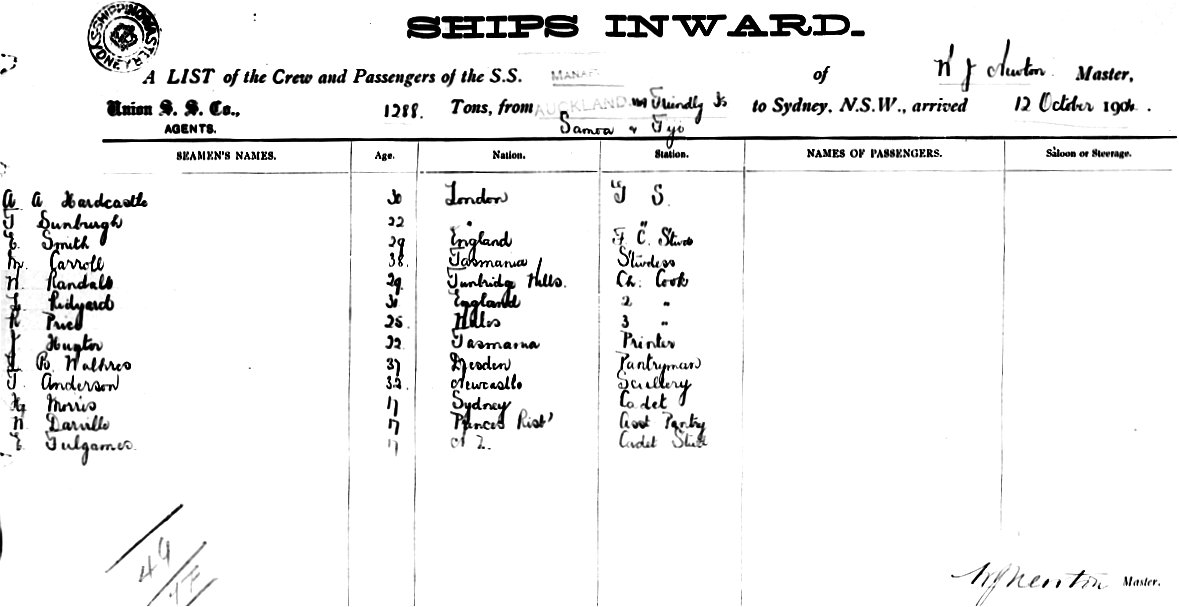 SHIPS INWARD.
A LIST of the Crew and Passengers of the S.S. of W J Newton Master,
Union S. S. Co., 1288. Tons, from AUCKLAND Friendly Is to Sydney, N.S.W., arrived 12 October 190
AGENTS. Samoa & Fyi
SEAMEN'S NAMES. Age. Nation. Station. NAMES OF PASSENGERS. Saloon or Steerage.
A A Hardcastle 30 London F S.
T Sunburgh 22 " "
E. Smith 29 England F. C. Stwd
M. Carroll 38 Tasmania Stwdess
W Randall 29 Tunbridge Wells. Ch: Cook
Ridyard 30 England 2 "
R Price 25 Wales 3 "
Tasmania Printer
B. Walthres 37 Dresden Pantryman
T. Anderson 32 Newcastle Scullery
Hy Morris 17 Sydney Cadet
N Darville 17 Princes Rist' Asst Pantry
E. 17 N Z. Cadet Stwd
49
WJNewton Master.